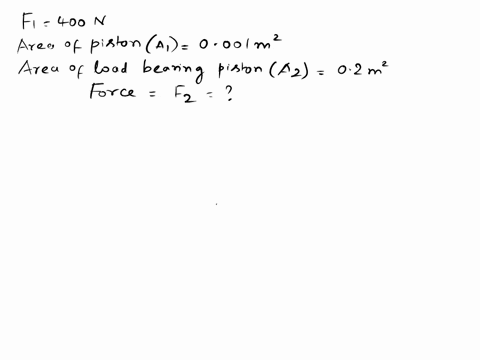 F1 = 400 N
Area of piston (A1) = 0.001 m²
Area of load bearing piston (A2) = 0.2 m²
Force = F2 = ?